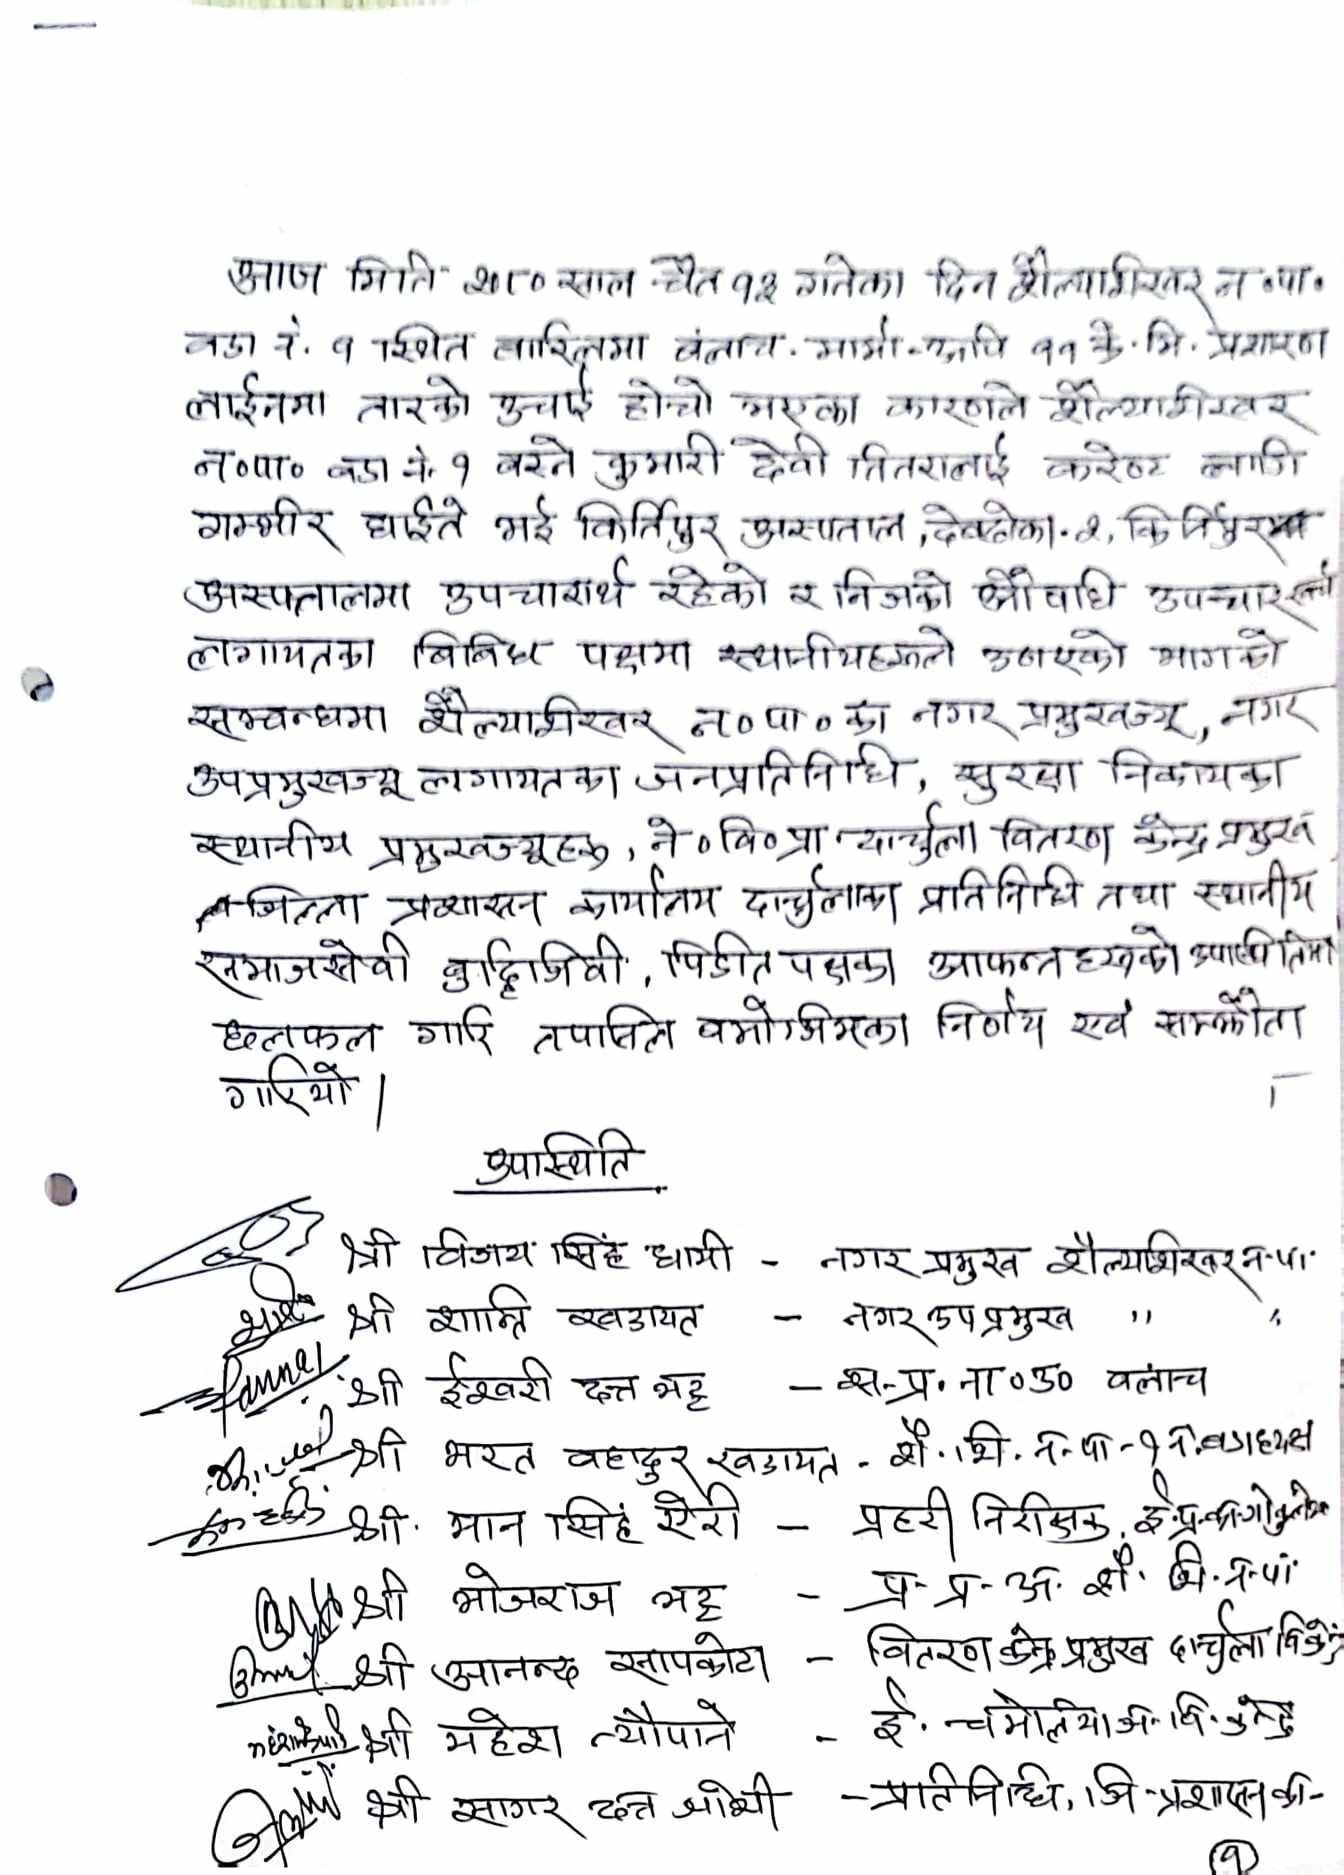 आज मिति २०८० साल चैत १३ गतेका दिन शैल्यशिखर न०पा०
वडा नं. १ स्थित मा बंलाच. मार्मा- ११ के. भि. प्रशारण
लाईनमा तारको उचाई होचो भएका कारणले शैल्यशिखर
न०पा० वडा नं. १ बस्ने कुमारी देवी तितरालाई करेण्ट लागि
गम्भीर घाईते भई किर्तिपुर अस्पताल, देवढोका-२, किर्तिपुर
अस्पतालमा उपचारार्थ रहेको र निजको औषधि उपचार खर्च
लगायतका बिबिध पक्षमा स्थानीयहरुले उठाएको मागको
सम्बन्धमा शैल्यशिखर न०पा०का नगर प्रमुखज्यू, नगर
उपप्रमुखज्यू लगायतका जनप्रतिनिधि, सुरक्षा निकायका
स्थानीय प्रमुखज्यूहरु, ने०वि०प्रा दार्चुला वितरण केन्द्र प्रमुख
जिल्ला प्रशासन कार्यालय दार्चुलाका प्रतिनिधि तथा स्थानीय
समाजसेवी बुद्धिजिवी, पिडीत पक्षका आफन्तहरुको उपस्थितिमा
छलफल गरि तपसिल बमोजिमका निर्णय एवं सम्झौता
गरियो।
उपस्थिति
श्री विजय सिंह धामी - नगर प्रमुख शैल्यशिखर न.पा.
श्री शान्ति खडायत - नगर उप प्रमुख " "
श्री ईश्वरी दत्त भट्ट - स.प्र.ना०उ० बलांच
श्री भरत बहादुर खडायत - शै. शि. न.पा-१ नं. वडाध्यक्ष
श्री मान सिंह ऐरी - प्रहरी निरीक्षक, ई.प्र.का.गोकुलेश्वर
श्री भोजराज भट्ट - प्र. प्र. अ. शै. शि. न.पा.
श्री आनन्द सापकोटा - वितरण केन्द्र प्रमुख दार्चुला वि.केन्द्र
श्री महेश न्यौपाने - ई. चमेलिया ज. वि. केन्द्र
श्री सागर दत्त जोशी - प्रतिनिधि, जि-प्रशासन का-
१